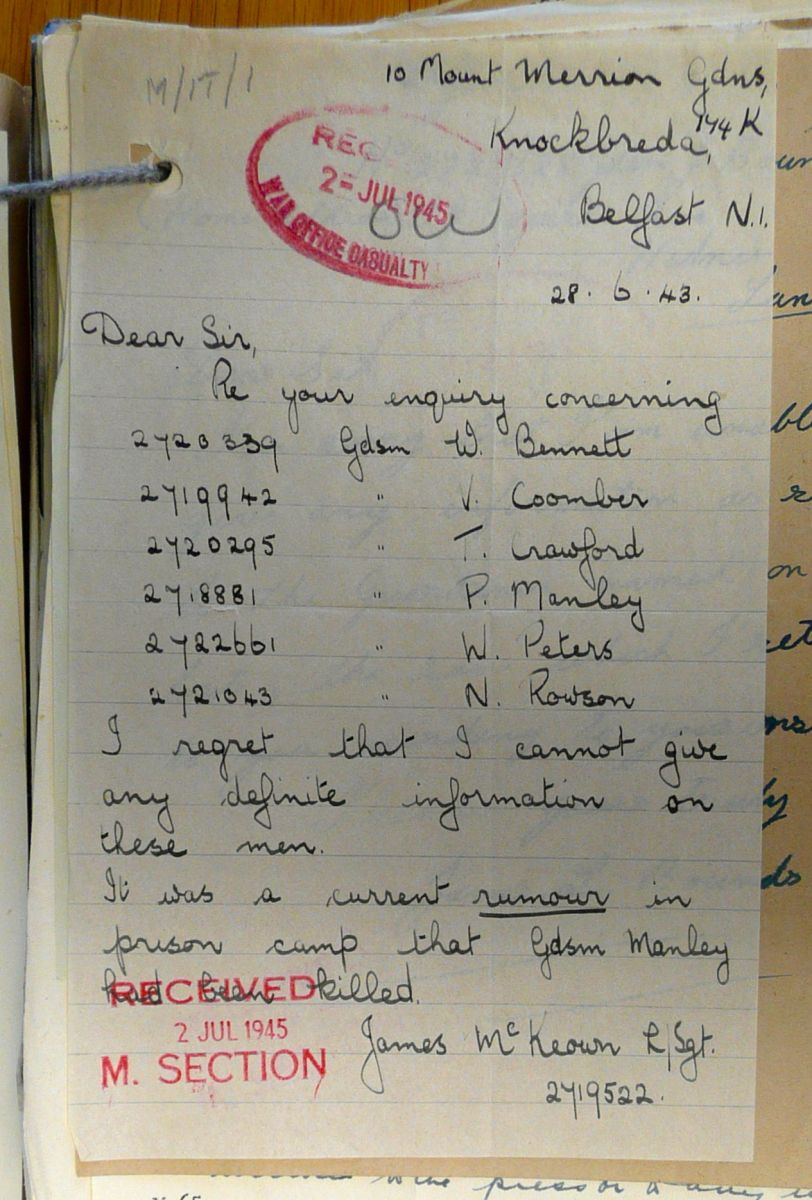 M/IT/1
10 Mount Merrion Gdns,
Knockbreda, 174K
Belfast N.I.
REC
2 = JUL 1945
WAR OFFICE CASUALTY
28. 6. 43.
Dear Sir,
Re your enquiry concerning
2720339 Gdsm W. Bennett
2719942 " V. Coomber
2720295 " T. Crawford
2718881 " P. Manley
2722661 " W. Peters
2721043 " N. Rowson
I regret that I cannot give
any definite information on
these men.
It was a current rumour in
prison camp that Gdsm Manley
had been killed.
RECEIVED
2 JUL 1945
M. SECTION
James McKeown L/Sgt.
2719522.